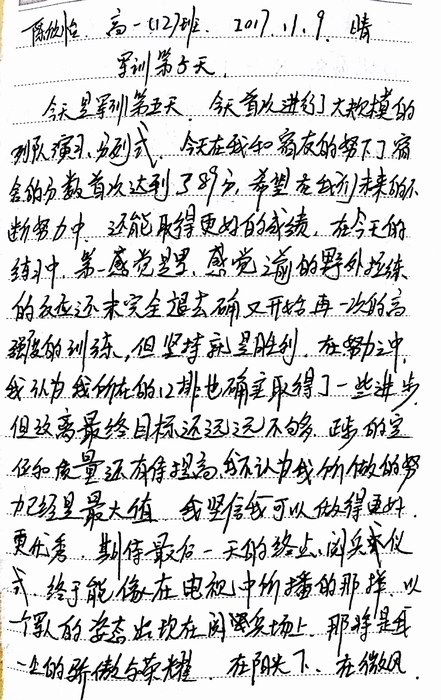 陈欣怡 高一(12)班 2017.11.9 晴
军训第5天
今天是军训第五天 今天首次进行了大规模的
列队演习、分列式 今天在我和宿友的努下了宿
舍的分数首次达到了89分,希望在我们未来的不
断努力中 还能取得更好的成绩.在今天的
练习中,第一感觉是累,感觉之前的野外拉练
的反应还未完全退去确又开始再一次的高
强度的训练,但坚持就是胜利.在努力之中
我认为我所在的12排也确实取得了一些进步
但设离最终目标还远远不够.正步的定
位和质量还有待提高,我不认为我所做的努
力已经是最大值 我坚信我可以做得更好.
更优秀.期待最后一天的终点、阅兵式仪
式.终于能像在电视中所播的那样 以
个军人的姿态出现在阅兵场上.那将是我
一生的骄傲与荣耀.在阳光下、在微风